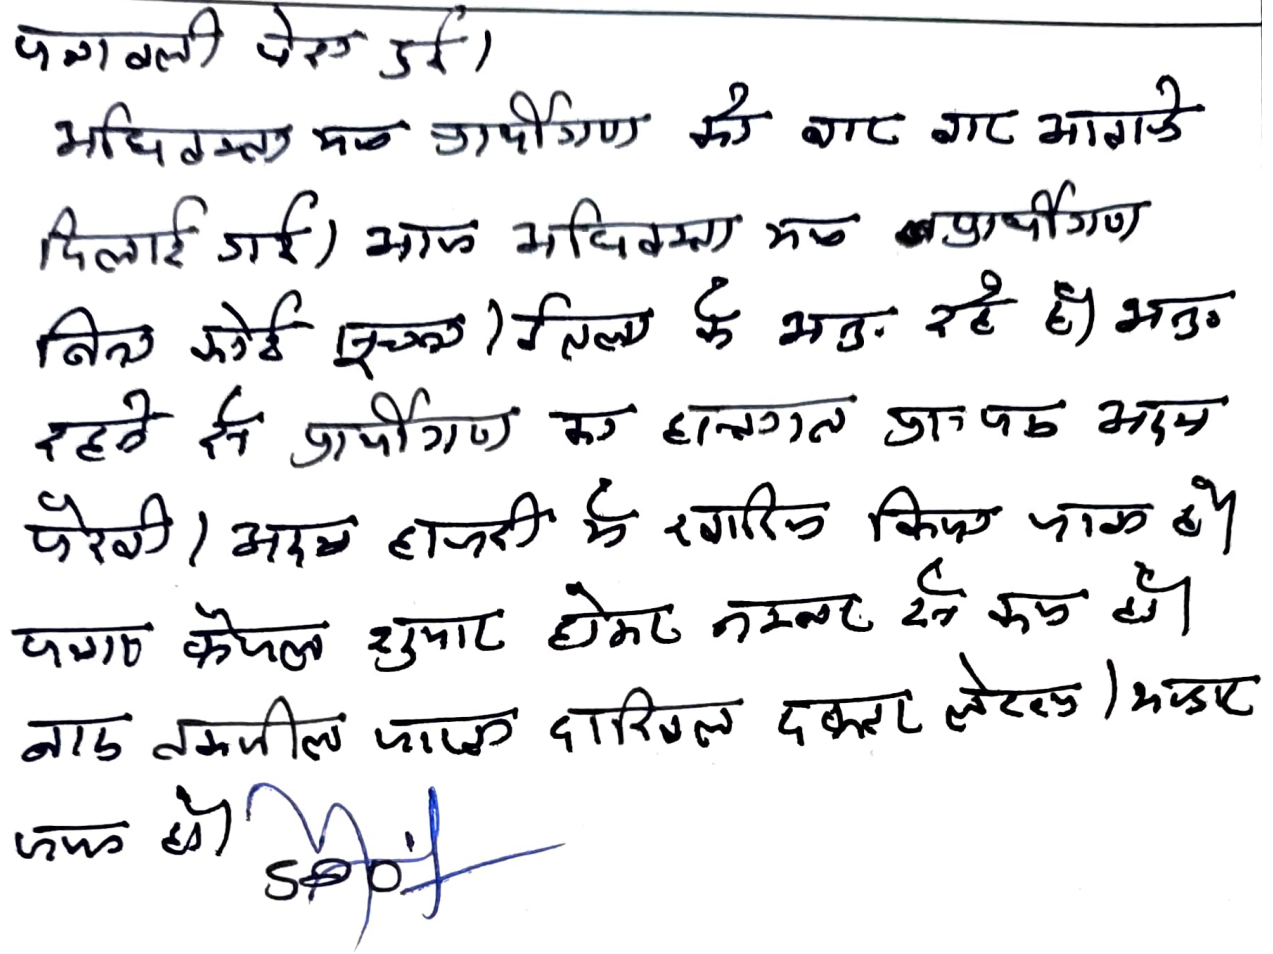 पत्रावली पेश हुई।
अधिवक्ता मय प्रार्थीगण को बार बार आवाजे
दिलाई गई। आज अधिवक्ता मय प्रार्थीगण
बिना कोई सूचना / इत्तला के अनु. रहे है। अनु.
रहने से प्रार्थीगण का हस्तगत प्रा. पत्र अदम
पैरवी / अदम हाजरी में खारिज किया जाता है।
पत्रावली फैसल शुमार होकर नम्बर से कम हो।
बाद तकमील जाप्ता दाखिल दफ्तर लेटरल / भण्डार
जमा हो।
SDO